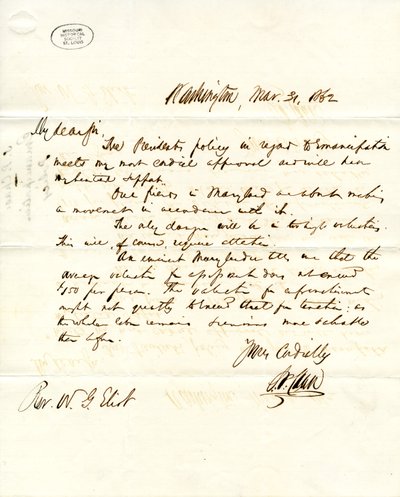 MISSOURI
HISTORICAL
SOCIETY
ST. LOUIS
Washington, Mar. 31, 1862
My dear Sir,
The President's policy in regard to Emancipation
meets my most cordial approval and will have
my hearted support.
Our friends in Maryland are about making
a movement in accordance with it.
The only danger will be in too high valuation.
This will, of course, require attention.
An eminent Marylander tells me that the
average valuation for does not exceed
$150 per person. The valuation for
ought not greatly to exceed that for taxation: as
the whole labor remains & becomes more valuable
than before.
Yours Cordially
Rev. W. G. Eliot